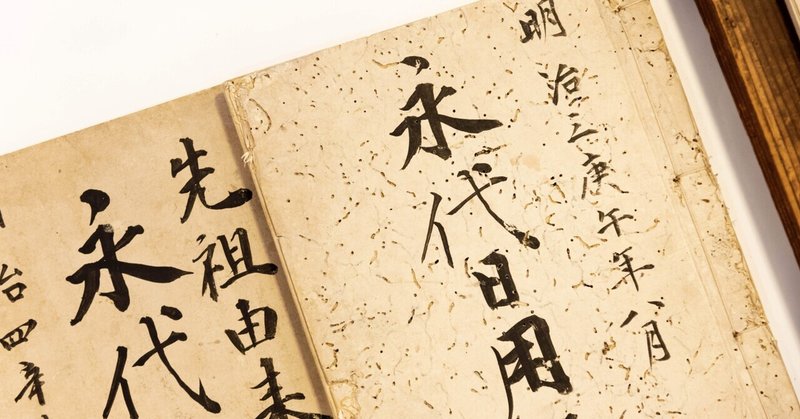 明治三庚午年八月
永代日用
先祖由来
永代
治四辛